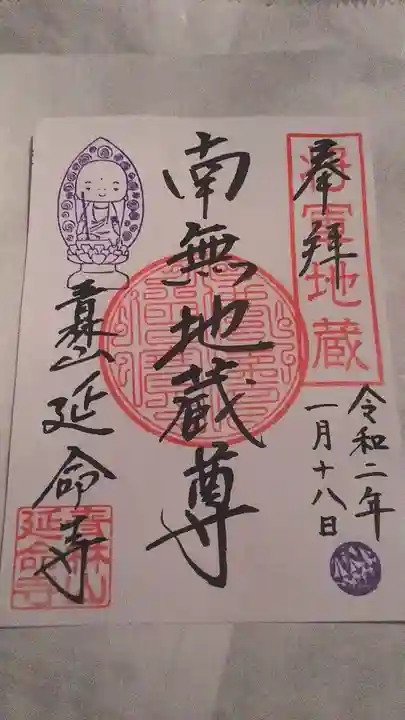 奉拝
令和二年
一月十八日
南無地蔵尊
延命寺
地蔵
延命寺